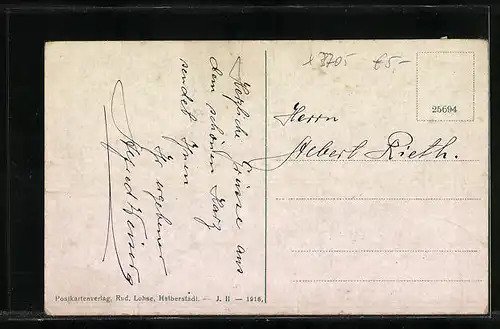 x 3705 €5,-
25694
Herrn
Albert Rieth.
Herzliche Grüsse aus
dem schönen Harz
sendet Ihnen
Ihr ergebener
Alfred
Postkartenverlag, Rud. Lohse, Halberstadt. — J. II — 1916,